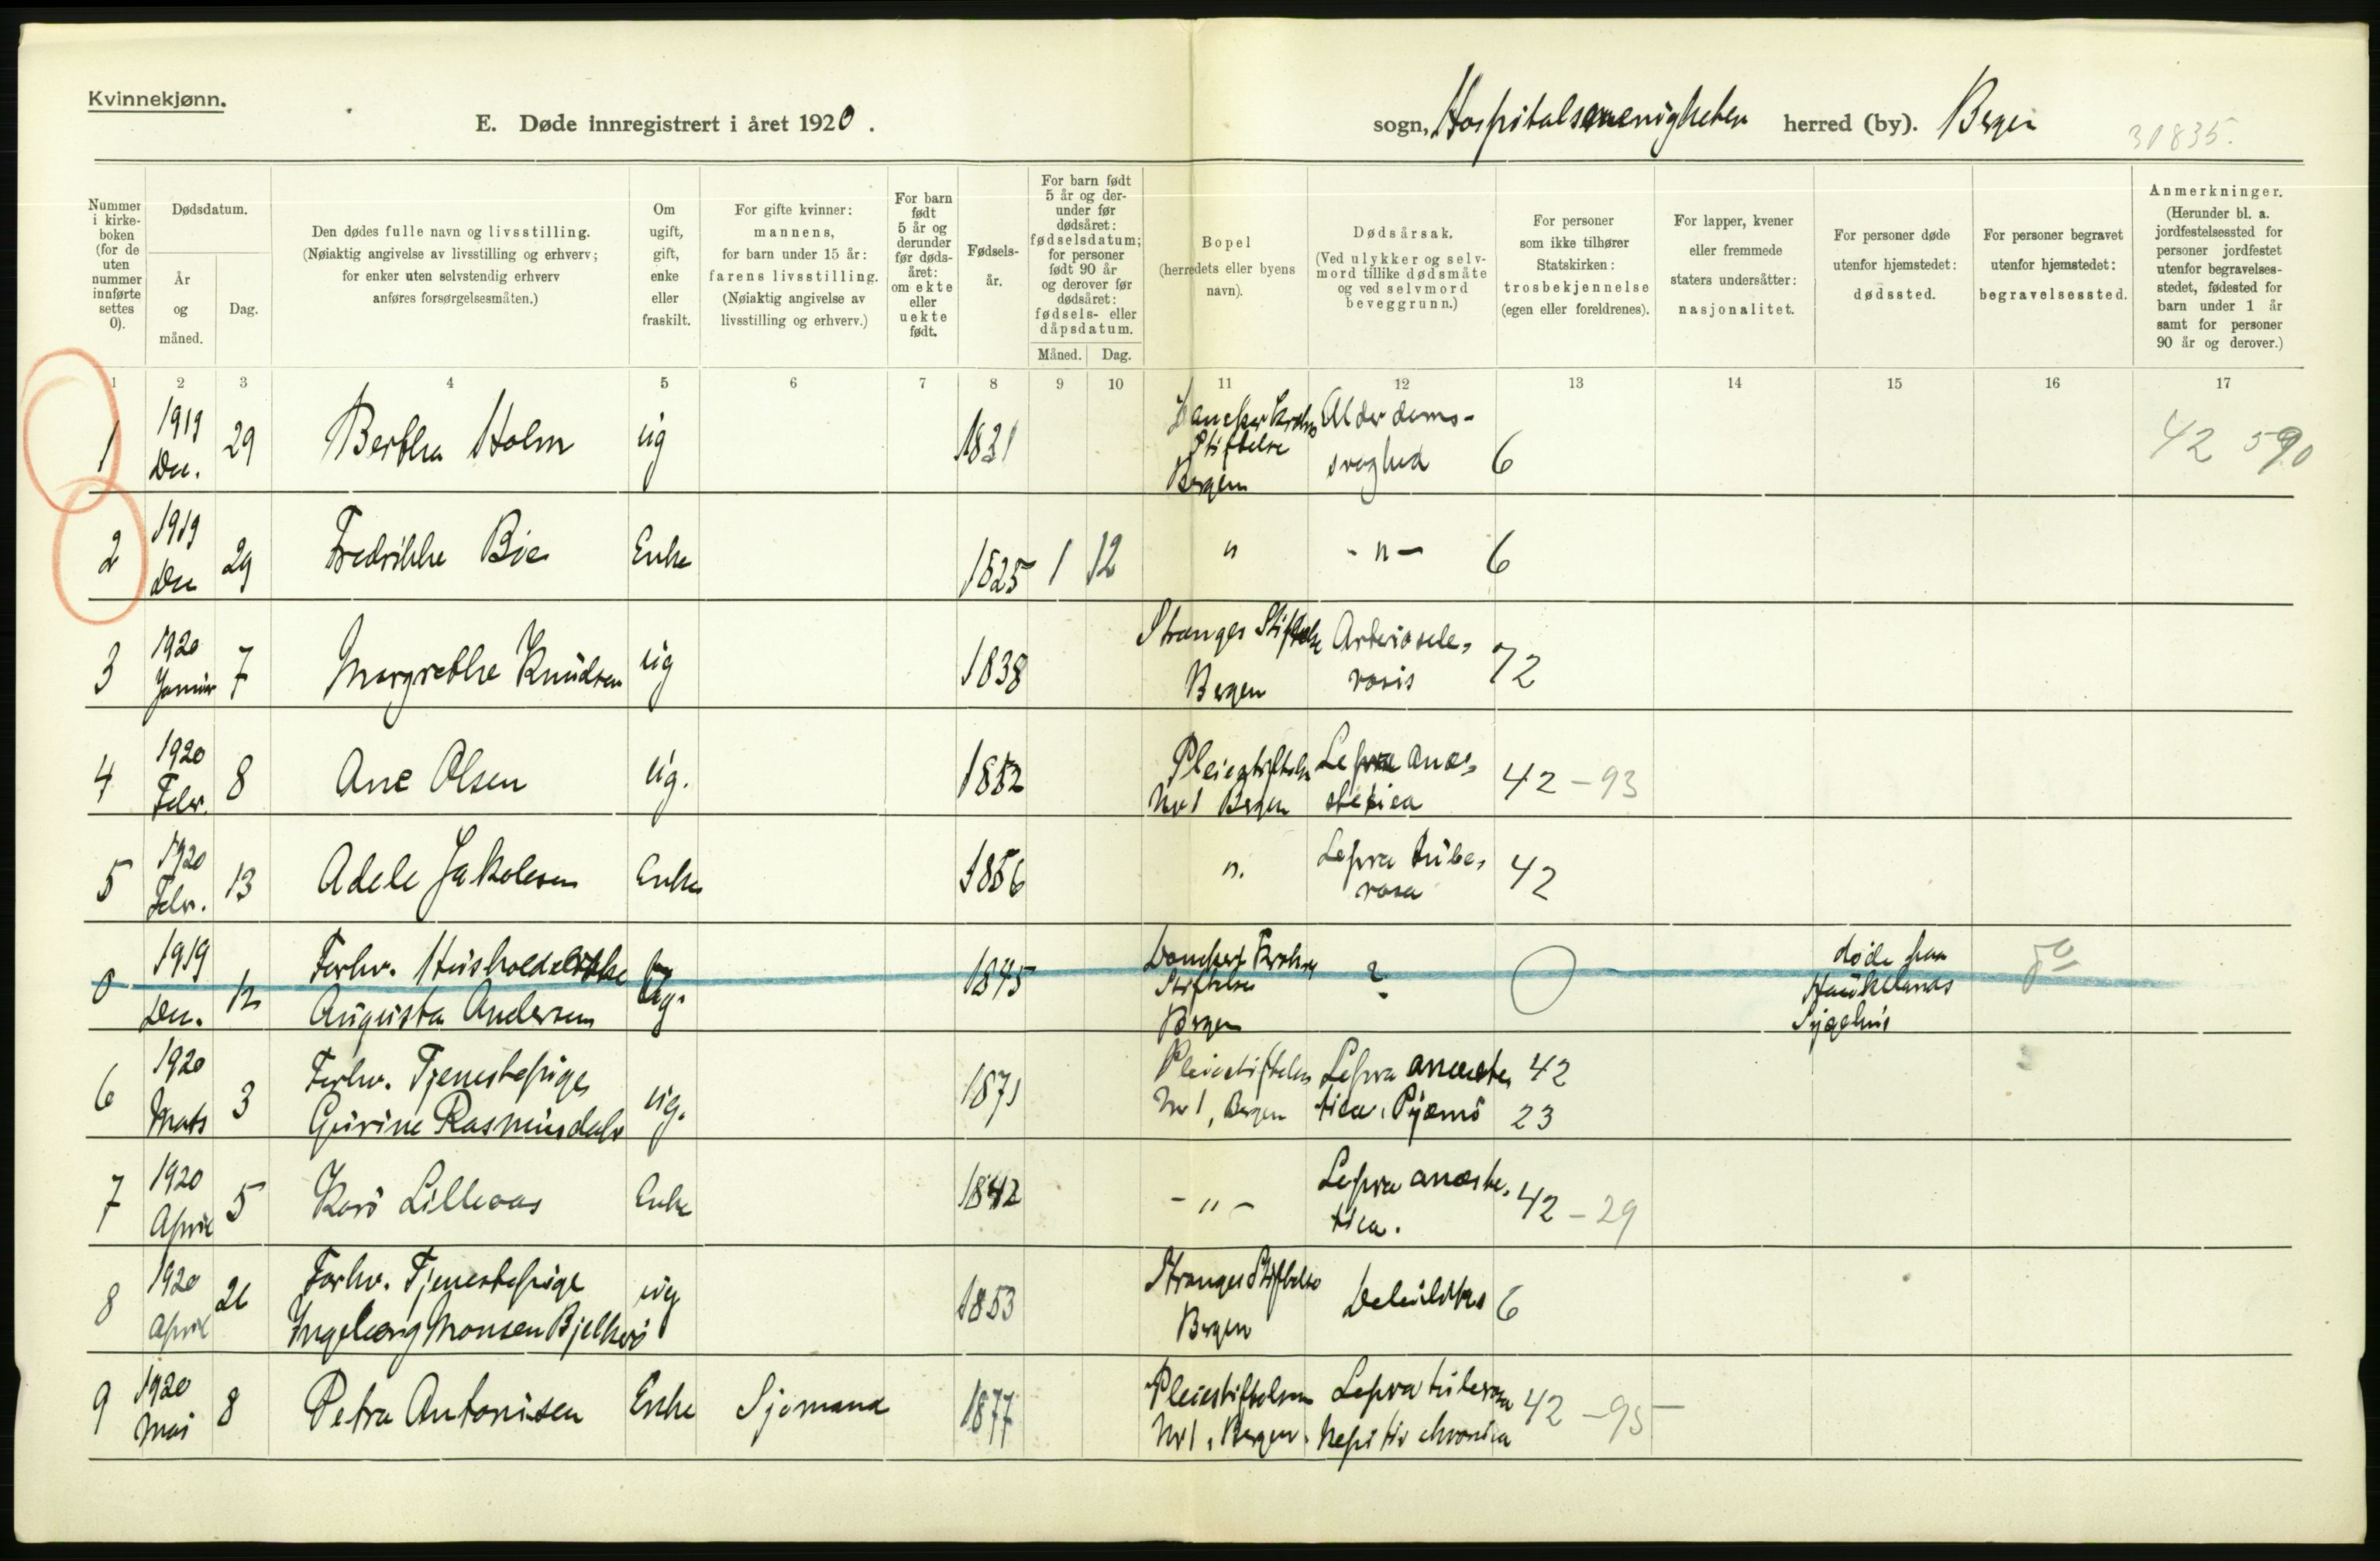 Kvinnekjønn.
E. Døde innregistrert i året 1920.
sogn, Hospitalsmenigheten herred (by). Bergen
30835.
Nummer i kirke-boken (for de uten nummer innførte settes 0).
Dødsdatum.
År og måned.
Dag.
Den dødes fulle navn og livsstilling.
(Nøiaktig angivelse av livsstilling og erhverv;
for enker uten selvstendig erhverv
anføres forsørgelsesmåten.)
Om ugift, gift, enke eller fraskilt.
For gifte kvinner:
mannens,
for barn under 15 år:
farens livsstilling.
(Nøiaktig angivelse av
livsstilling og erhverv.)
For barn født 5 år og derunder før døds-året: om ekte eller uekte født.
Fødsels-år.
For barn født 5 år og der-under før dødsåret: fødselsdatum; for personer født 90 år og derover før dødsåret: fødsels- eller dåpsdatum.
Måned. Dag.
Bopel
(herredets eller byens
navn).
Dødsårsak.
(Ved ulykker og selv-
mord tillike dødsmåte
og ved selvmord
beveggrunn.)
For personer
som ikke tilhører
Statskirken:
trosbekjennelse
(egen eller foreldrenes).
For lapper, kvener
eller fremmede
staters undersåtter:
nasjonalitet.
For personer døde
utenfor hjemstedet:
dødssted.
For personer begravet
utenfor hjemstedet:
begravelsessted.
Anmerkninger.
(Herunder bl. a.
jordfestelsessted for
personer jordfestet
utenfor begravelses-
stedet, fødested for
barn under 1 år
samt for personer
90 år og derover.)
1 2 3 4 5 6 7 8 9 10 11 12 13 14 15 16 17
1 1919 Des. 29 Berthe Holm ug 1821 Danckert Krohns Stiftelse Bergen Alderdoms-svaghed 6 42 590
2 1919 Des 29 Fredrikke Bøe Enke 1825 1 12 " - " - 6
3 1920 Januar 7 Margrethe Knudsen ug 1838 Stranges Stiftelse Bergen Arteriosclerosis 72
4 1920 Febr. 8 Ane Olsen ug. 1852 Pleiestiftelsen Nr 1 Bergen Lepra anæstetica 42 - 93
5 1920 Febr. 13 Adele Jakobsen Enke 1856 ". Lepra tuberosa 42
0 1919 Des. 12 Forhv. Husholderske
Augusta Andersen ug. 1845 Danckert Krohns Stiftelse Bergen ? døde paa Hauklands Sygehus
6 1920 Mars 3 Forhv. Tjenestepige
Gurine Rasmusdatr ug. 1871 Pleiestiftelsen Nr 1, Bergen Lepra anæstetica, Pyæmi 42 23
7 1920 April 5 Kari Lilleaas Enke 1842 - " - Lepra anæstetica. 42 - 29
8 1920 April 26 Forhv. Tjenestepige
Ingeborg Monsen ug 1853 Stranges Stiftelse Bergen 6
9 1920 Mai 8 Petra Antonisen Enke Sjømand 1877 Pleiestiftelsen Nr 1, Bergen. Lepra tuberosa chronica 42 - 95